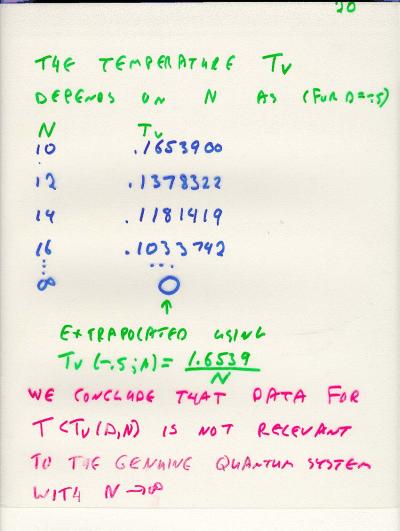 20
THE TEMPERATURE Tv
DEPENDS ON N AS (FOR Δ=-.5)
N Tv
10 .1653900
12 .1378322
14 .1181419
16 .1033742
∞ 0
↑
EXTRAPOLATED USING
Tv(-.5;N)= 1.6539
N
WE CONCLUDE THAT DATA FOR
T<Tv(Δ,N) IS NOT RELEVANT
TO THE GENUINE QUANTUM SYSTEM
WITH N→∞